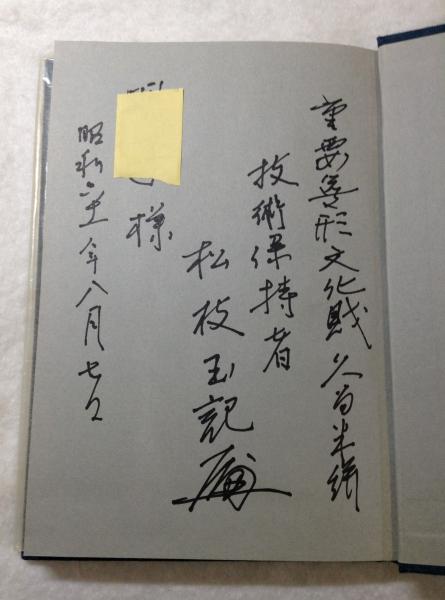 重要無形文化財 久留米絣
技術保持者
松枝玉記
様
昭和六十一年八月七日